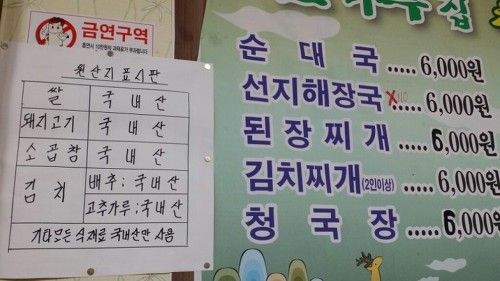 금연구역
원산지 표시판
쌀 국내산
돼지고기 국내산
소곱창 국내산
김치 배추 : 국내산
고추가루 : 국내산
기타모든 식재료 국내산만 사용
순대국 ..... 6,000원
선지해장국 ..... 6,000원
된장찌개 ..... 6,000원
김치찌개(2인이상) ..... 6,000원
청국장 ..... 6,000원